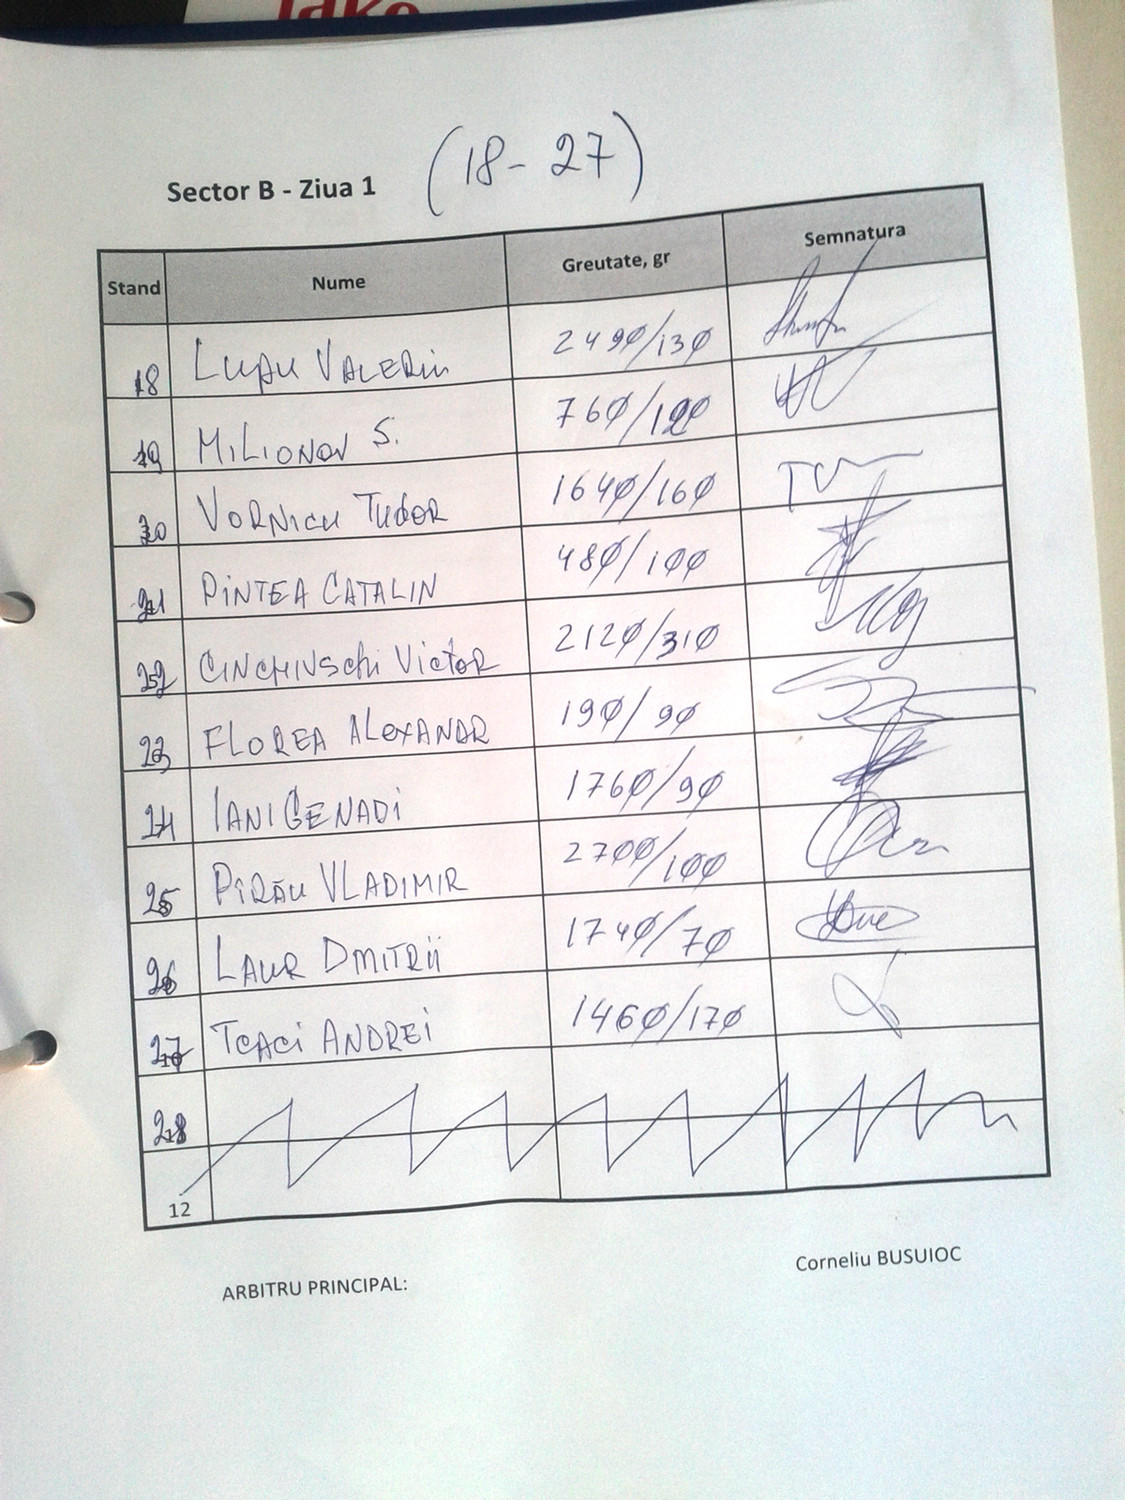 Jako
(18 - 27)
Sector B - Ziua 1
Stand Nume Greutate, gr Semnatura
18 LUPAU VALERIU 2490/130
19 MILIONOV S. 760/120
20 VORNICU TUDOR 1640/160
21 PINTEA CATALIN 480/100
22 CINCHIVSCHI VICTOR 2120/310
23 FLOREA ALEXANDR 190/90
24 IANI GENADI 1760/90
25 PÎRĂU VLADIMIR 2700/100
26 LAUR DMITRII 1740/70
27 TCACI ANDREI 1460/170
28
12
ARBITRU PRINCIPAL: Corneliu BUSUIOC